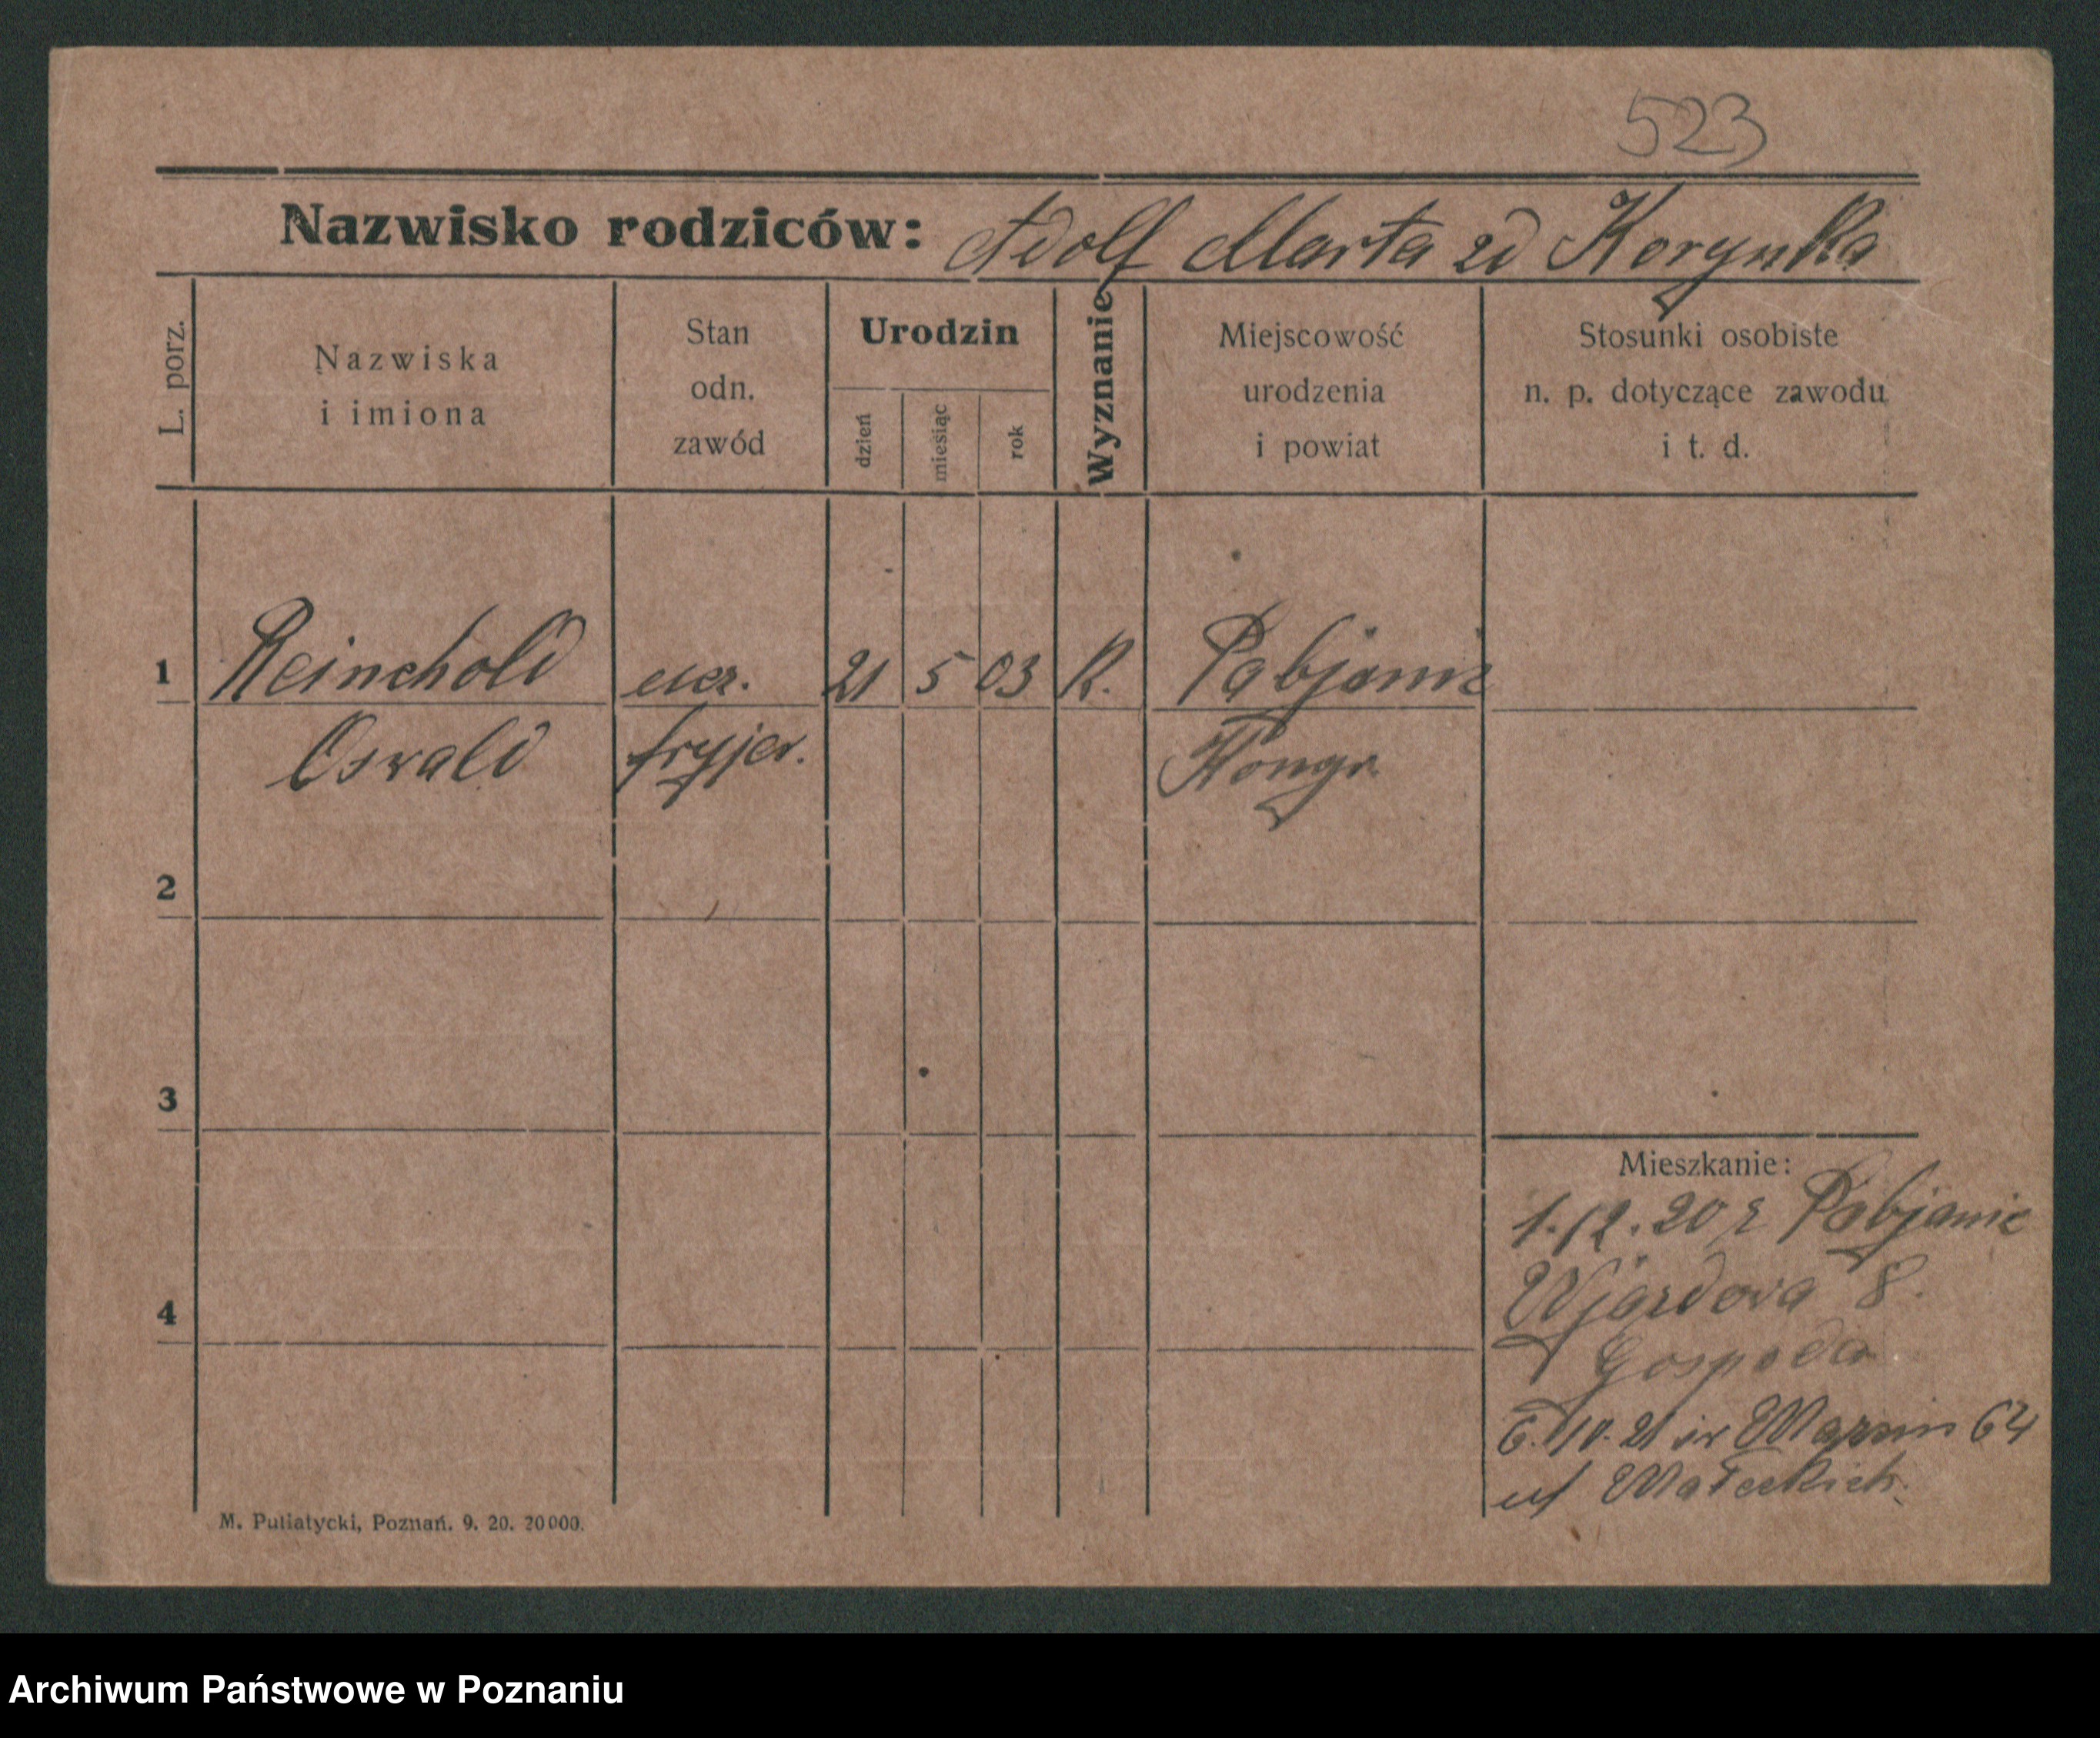 523
Nazwisko rodziców: Adolf Marta zd Korynka
L. porz.
Nazwiska
i imiona
Stan
odn.
zawód
Urodzin
dzień
miesiąc
rok
Wyznanie
Miejscowość
urodzenia
i powiat
Stosunki osobiste
n. p. dotyczące zawodu
i t. d.
1 Reinchold ucz. 21 5 03 K. Pabjanic
Oswald fryjer. Kongr.
2
3
4
Mieszkanie:
1.12.20 z Pabjanic
Wjazdowa 8.
Gospoda
6.10.21 św Marcin 64
u
M. Puliatycki, Poznań. 9. 20. 20000.
Archiwum Państwowe w Poznaniu